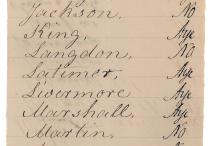 Jackson, No
King, Aye
Langdon, No
Latimer, Aye
Livermore Aye
Marshall, Aye
Martin, No